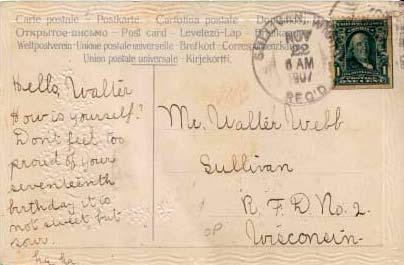 Carte postale – Postkarte – Cartolina postale – Dopisnice
Открытое письмо – Post card – Levelező-Lap –
Weltpostverein · Union postale universelle – Brefkort – Correspondenzkarte
Union postale universelle – Kirjekortti.
NOV
22
6 AM
1907
REC'D.
ONE CENT
Hello, Walter
How is yourself?
Don't feel too
proud of your
seventeenth
birthday it is
not sweet but
sour.
ha-ha
Mr. Walter Webb
Sullivan
R. F. D. No. 2.
Wisconsin.